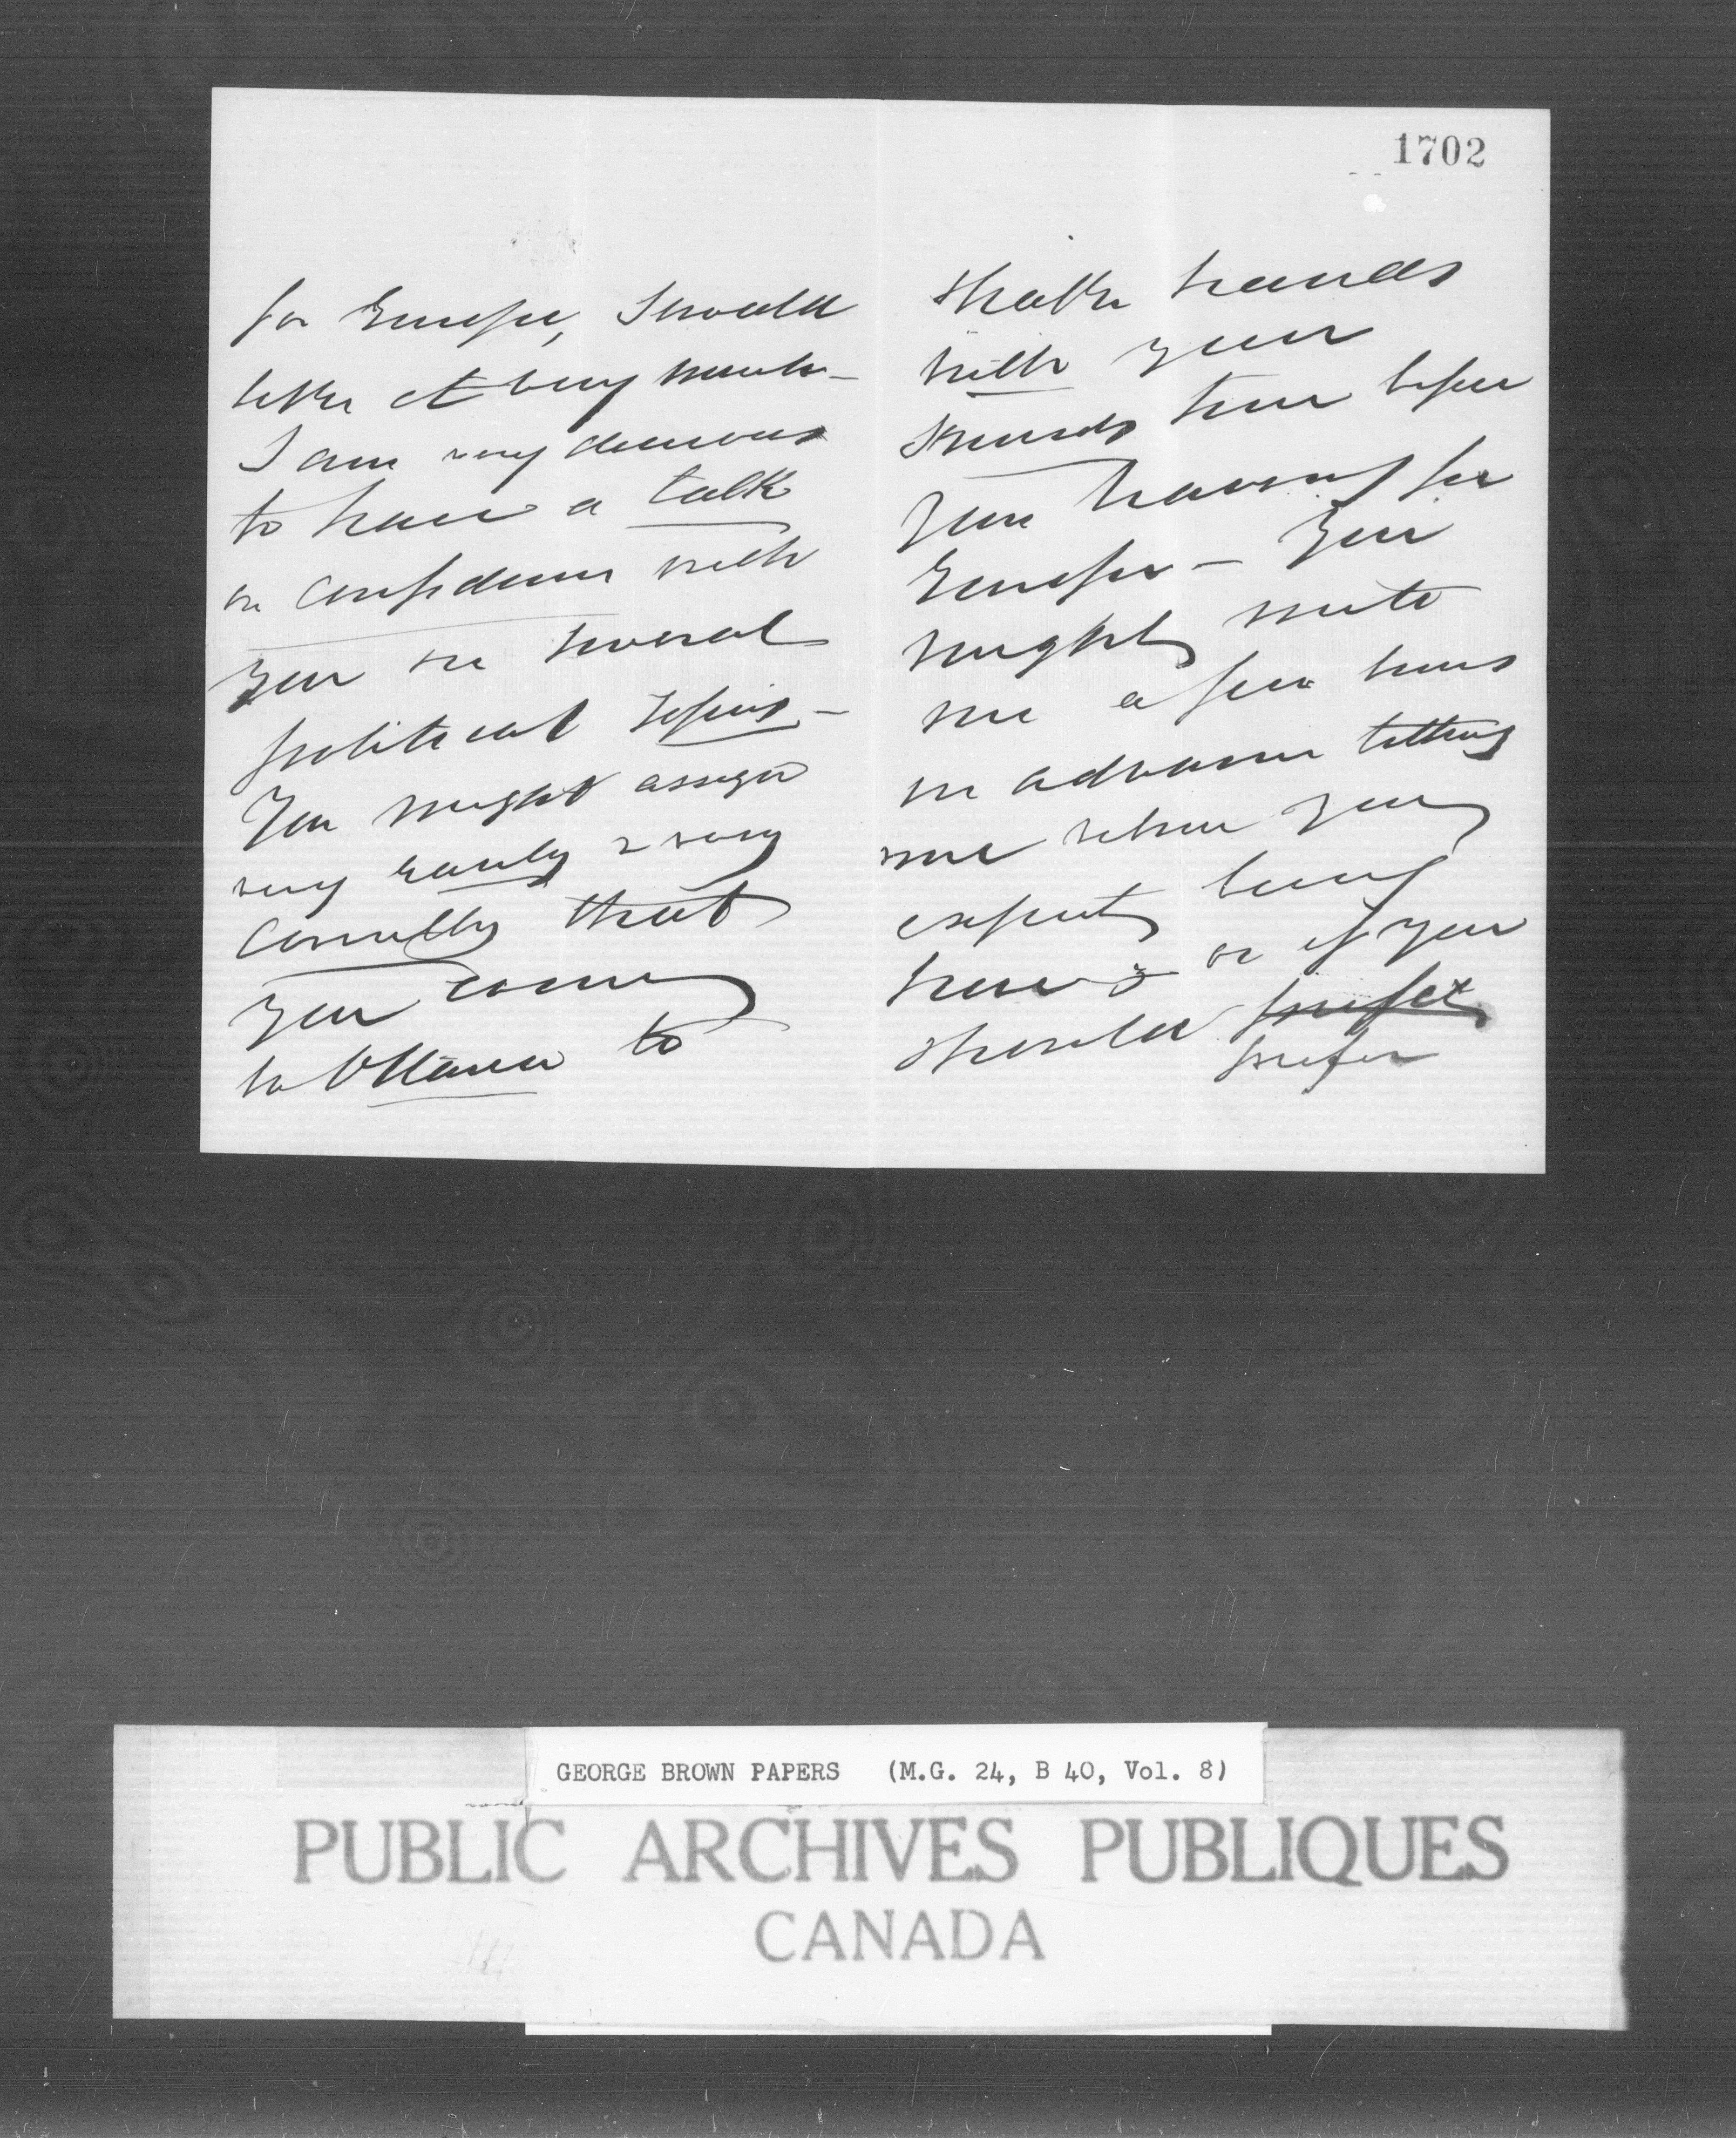 1702
for Europe, I would
like it very much –
I am very desirous
to have a talk
in confidence with
you on several
political topics –
You might assign
very easily & very
correctly that
you came
to Ottawa to
shake hands
with your
friends here before
your leaving for
Europe – You
might write
me a few lines
in advance telling
me when you
expect being
here & or if you
should prefer
prefer
GEORGE BROWN PAPERS (M.G. 24, B 40, Vol. 8)
PUBLIC ARCHIVES PUBLIQUES
CANADA